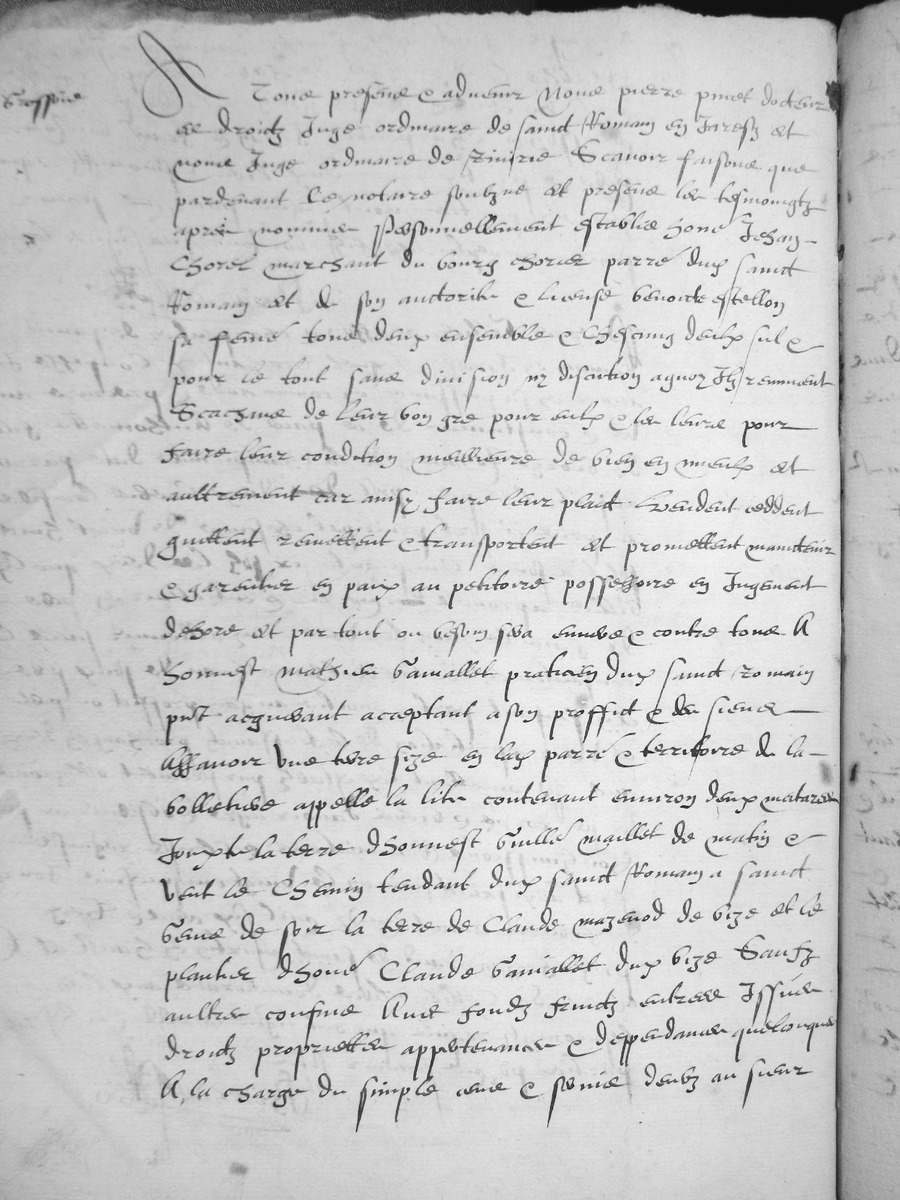 Grossoié
A Tous presens & advenir Nous pierre pinet docteur
es droictz Juge ordinaire de sainct Romain en Jarestz et
nous Juge ordinaire de Scavoir faisons que
pardevant le notaire soubzné et presens les tesmoingtz
apres nommes Personnellement establys honé Jehan
Chorel marchant du bourg parré dud sainct
Romain et de son auctorité & license benoicte estellon
sa femé tous deux ensemble & chescung deulx sul &
pour le tout sans division ny discution
Scachans de leur bon gre pour eulx & les leurs pour
faire leur condition meilleure de bien en mieulx et
aultrement car ainsy faire leur plaict Vendent ceddent
quittent remettent & transportent et promettent maintenir
& garentier en paix au petitoire possessoire en Jugement
dehors et par tout ou besoin sera envers & contre tous A
honnest mathieu Gavallet praticien dud sainct romain
pnt acquerant acceptant a son proffict & des siens
Assavoir Une terre size en lad parré & territoire de la
appelle la contenant environ deux metares
Jouxte la terre dhonnest Guillé maillet de matin &
vent le Chemin tendant dud sainct Romain a sainct
Genis de soir la terre de Claude mazenod de bize et le
plantier dhoné Claude Gavallet dud bize Saufz
aultres confins Avec fondz fruictz entrees Issues
droictz propriettes appertenances & deppendances quelconques
A la charge du simple cens & servis deubz au sieur